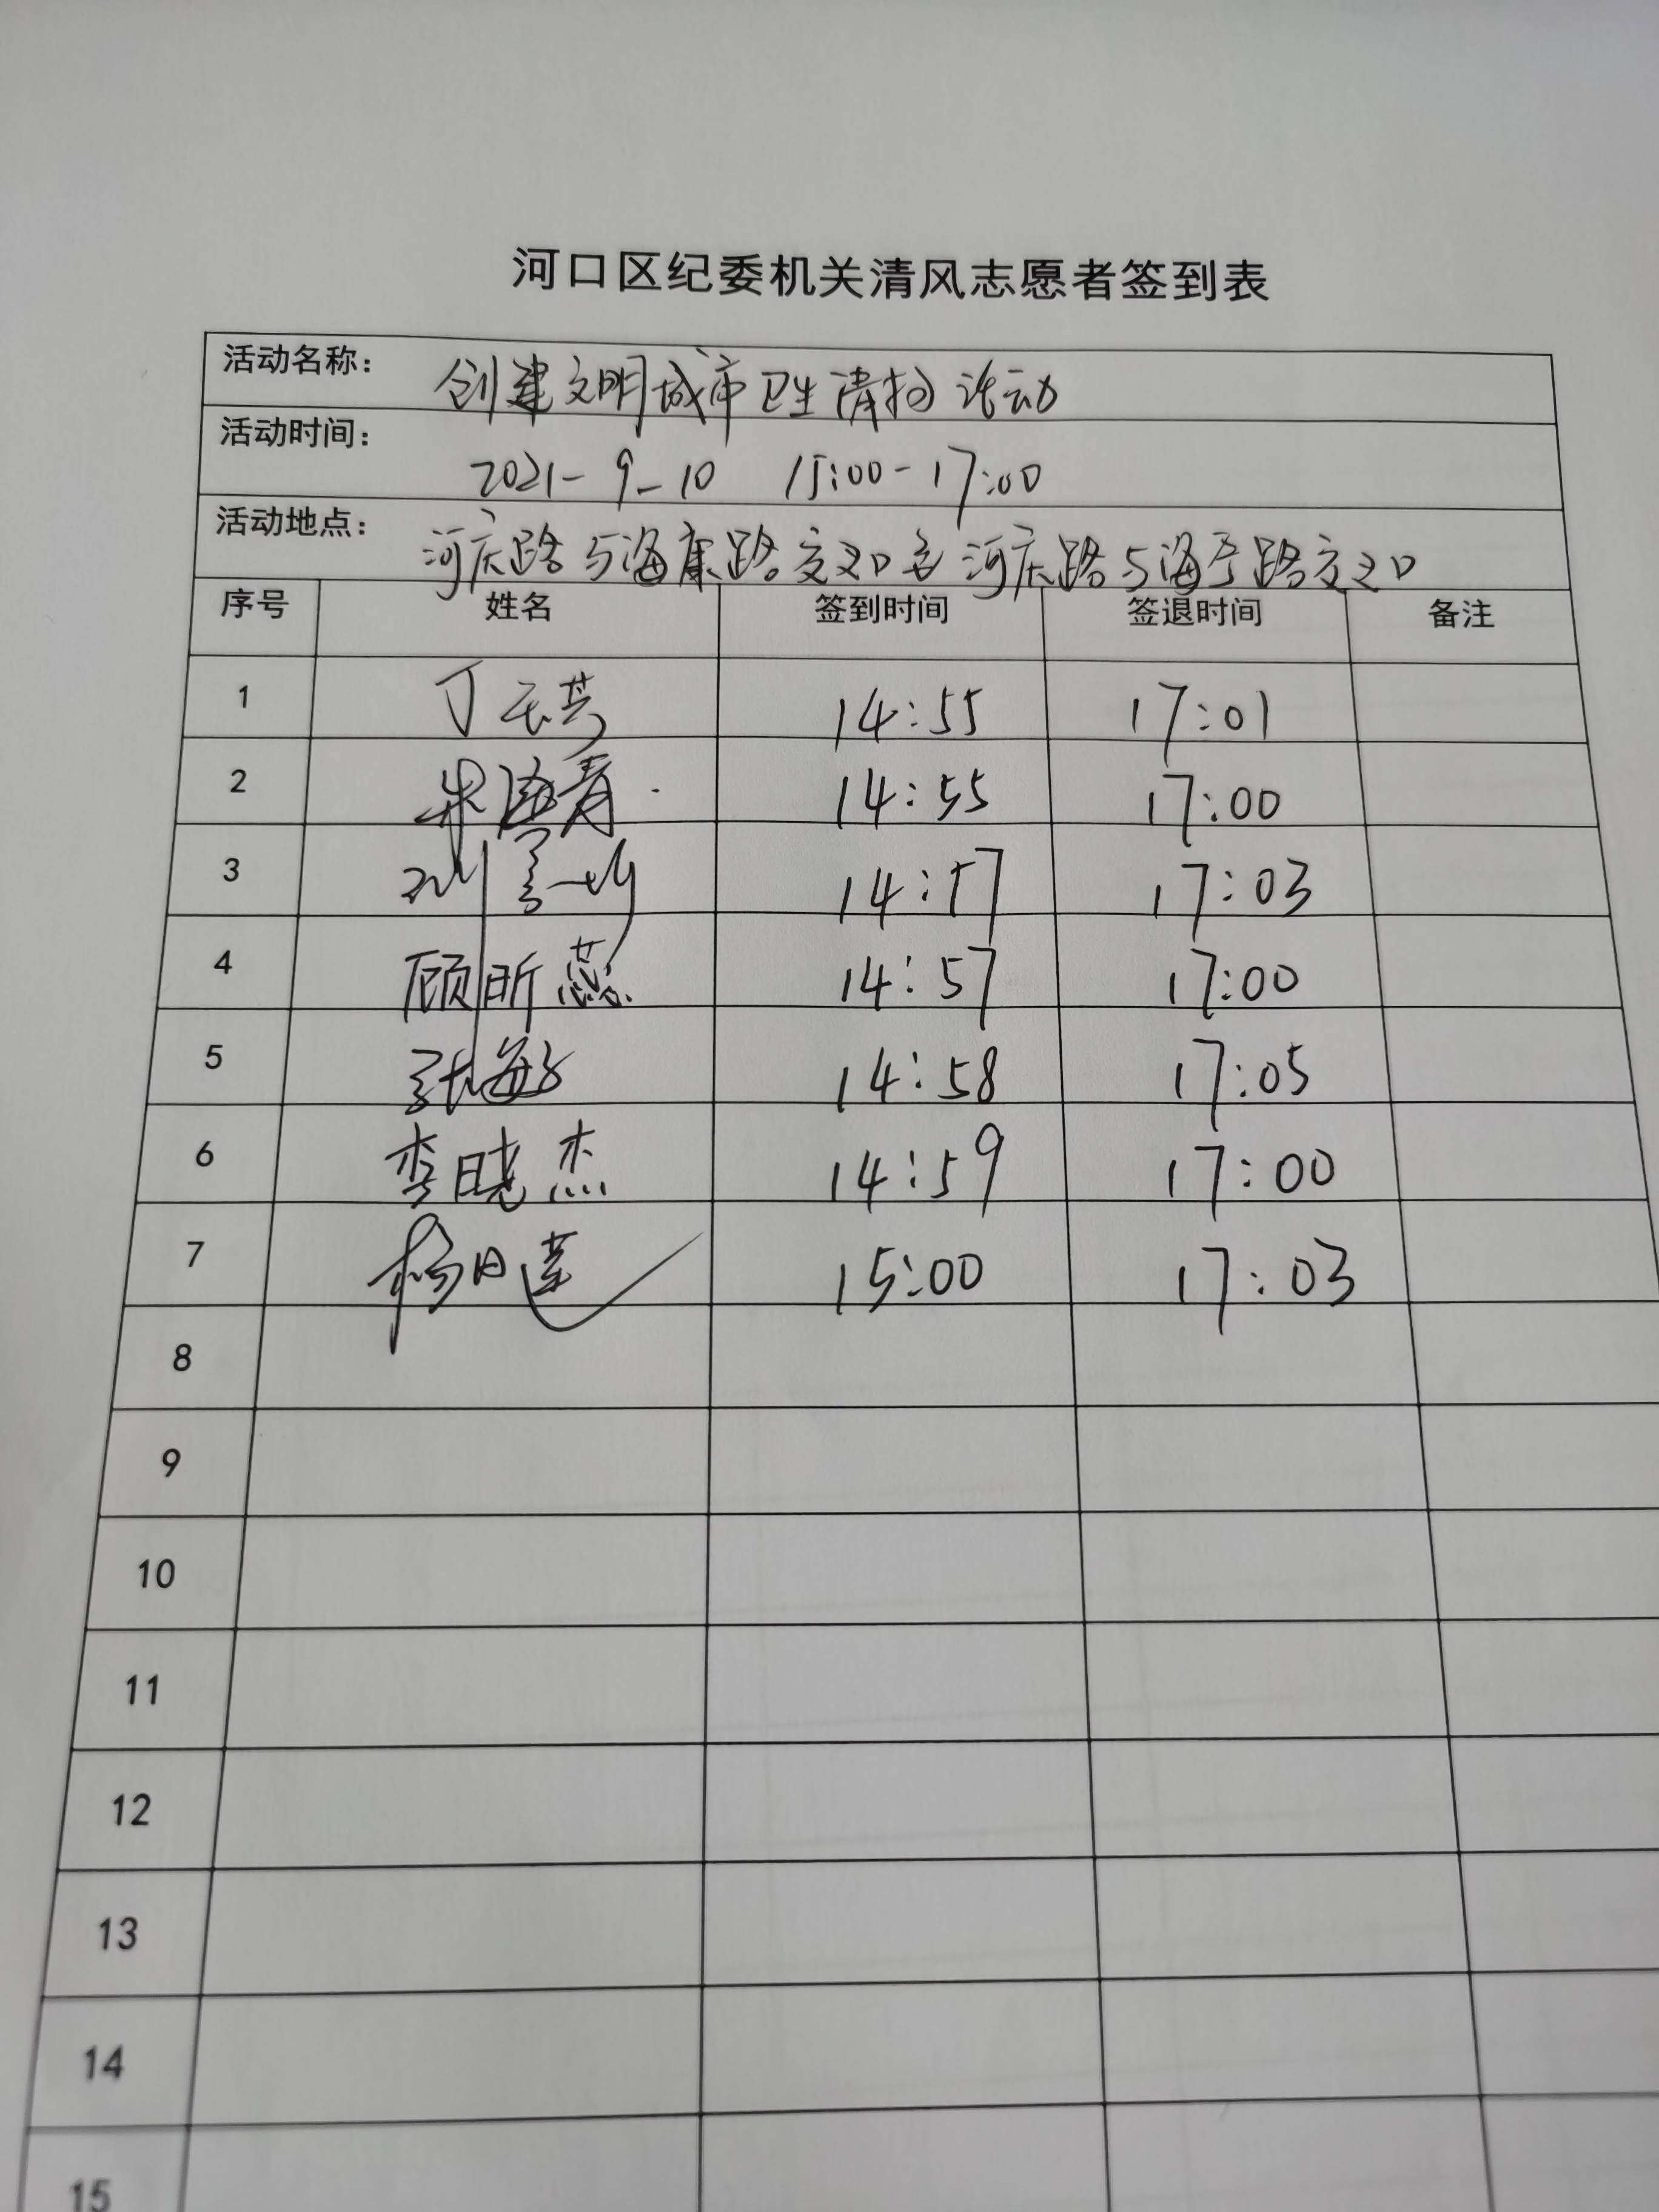 河口区纪委机关清风志愿者签到表
活动名称： 创建文明城市卫生清扫活动
活动时间： 2021-9-10 15:00-17:00
活动地点： 河庆路与海康路交叉口至河庆路与海宁路交叉口
序号 姓名 签到时间 签退时间 备注
1 丁 14:55 17:01
2 14:55 17:00
3 刘 14:57 17:03
4 顾昕蕊 14:57 17:00
5 张敏 14:58 17:05
6 李晓杰 14:59 17:00
7 杨日莲 15:00 17:03
8
9
10
11
12
13
14
15